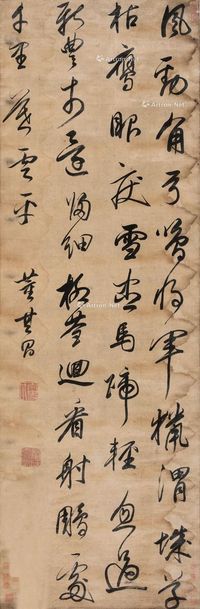 風勁角弓鳴將軍獵渭城草
枯鷹眼疾雪盡馬蹄輕忽過
新豐市還歸細柳營迴看射鵰處
千里暮雲平
董其昌
Artron.Net